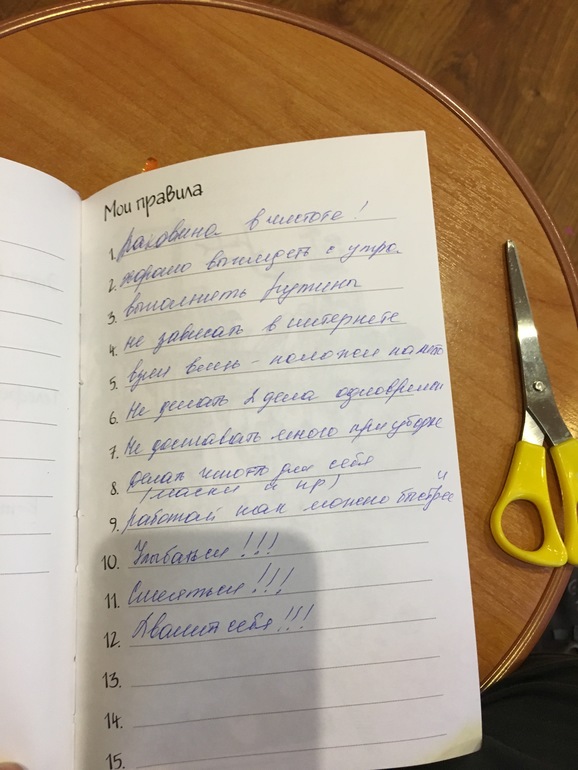 Мои правила
1. раковина в чистоте!
2. хорошо выглядеть с утра
3. выполнять рутины
4. не зависать в интернете
5. взял вещь - положи на место
6. Не делать 2 дела одновремен
7. Не доставать много при уборке
8. делать что-то для себя
(маски и пр)
9. работай как можно быстрее
10. Улыбайся!!!
11. Смеяться!!!
12. Хвалит себя!!!
13.
14.
15.